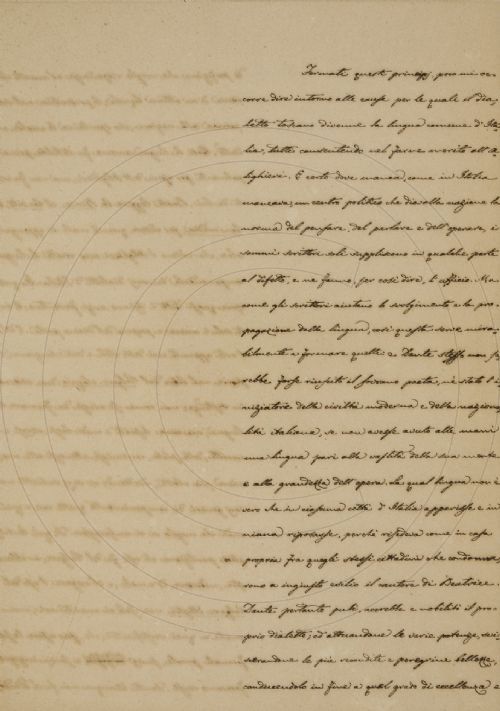 Fermati questi principj, poco mi oc-
corre dire intorno alle cause per le quali il dia-
letto toscano divenne la lingua comune d'Ita-
lia, tutti consentendo nel farne merito all'A-
lighieri. È certo dove manca, come in Italia
mancava, un centro politico che dia alla nazione la
norma del pensare, del parlare e dell'operare, i
sommi scrittori soli suppliscono in qualche parte
al difetto, e ne fanno, per così dire, l'ufficio. Ma
come gli scrittori aiutano lo svolgimento e la pro-
pagazione della lingua, così questa serve mira-
bilmente a formare quelli: e Dante stesso non sa-
rebbe forse riuscito il sovrano poeta, nè stato l'i-
niziatore della civiltà moderna e della naziona-
lità italiana, se non avesse avuto alle mani
una lingua pari alla vastità della sua mente
e alla grandezza dell'opera. La qual lingua non è
vero che in ciascuna città d'Italia apparisse e in
niuna riposasse, perchè risedeva come in casa
propria fra quegli stessi cittadini che condanna-
rono a ingiusto esilio il cantore di Beatrice.
Dante pertanto pulì, corresse e nobilitò il pro-
prio dialetto; ed attuandone le varie potenze,
scerandone le più recondite e peregrine bellezze,
conducendolo in fine a quel grado di eccellenza e